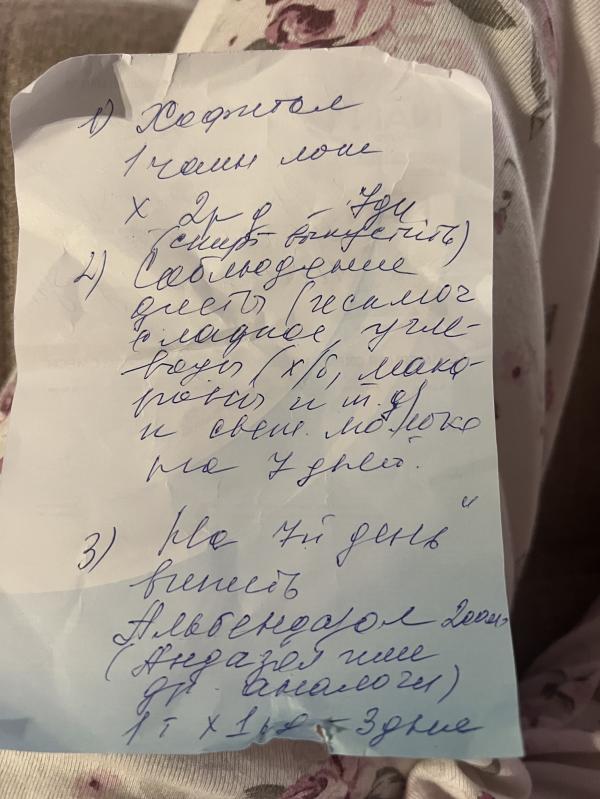 1) Хофитол
1 чайн лож
х 2р д – 7дн
(спирт выпустить)
2) Соблюдение
диеты (исключ
сладкое, угле-
воды (х/б, мака-
роны и т.д)
и свеж. молоко
на 7 дней.
3) На 7й день
выпить
Альбендазол 200мг
(Андазол или
др. аналоги)
1т х 1р д – 3 дня